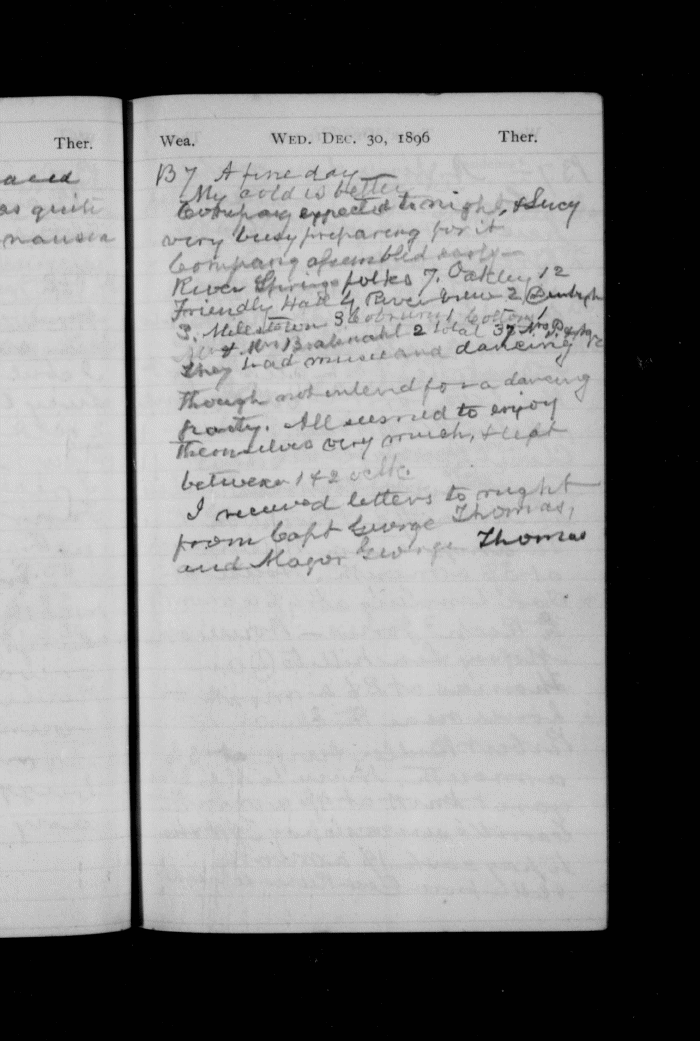 Ther.
as quite
nausea
Wea. WED. DEC. 30, 1896 Ther.
B 7 A fine day
My cold is better
Company expected to night, & Lucy
very busy preparing for it
Company assembled early
River Springs folks 7, Oakley 12
Friendly Hall 4 River View 2
3. Milestown 3 1 Colton 1
& Mrs 2 total 37 Mrs
they had music and dancing
though not intend for a dancing
party. All seemed to enjoy
themselves very much, & left
between 1 & 2 oclk.
I received letters to night
from Capt George Thomas,
and Major George Thomas